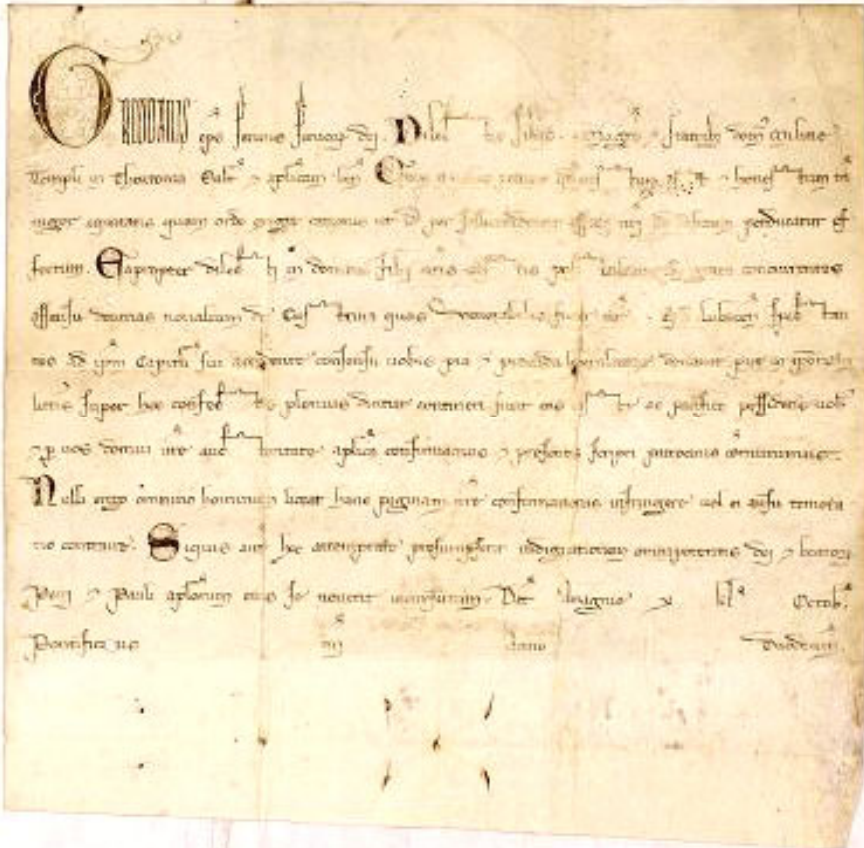 eps servus servorum dei. Dilectis filiis . Magro 7 fratribus dom militie
Templi in Theutonia Salt 7 aplicam ben. Cum a nobis petitur quod iustum est 7 honestum tam
vigor equitatis quam ordo exigit rationis ut id per sollicitudinem officii nri ad debitum perducatur ef
fectum. Eapropter dilecti in domino filii vris iustis postulationibus grato concurrentes
assensu decimas novalium de quas Venerabilis frater nr . Eps Lubucen spectan
tes ad ipm Capituli sui accedente consensu vobis pia 7 provida liberalitate donavit prout in
litteris super hoc confectis plenius dicitur contineri sicut eas iuste ac pacifice possidetis vobis
7 per vos domui vre auctoritate aplica confirmamus 7 presentis scripti patrocinio communimus.
Nulli ergo omnino hominum liceat hanc paginam nre confirmationis infringere vel ei ausu temera
rio contraire. Siquis aut hoc attemptare presumpserit indignationem omnipotentis dei 7 beatorum
Petri 7 Pauli aplorum eius se noverit incursurum. Dat x kl Octobr.
Pontificatus nri Anno